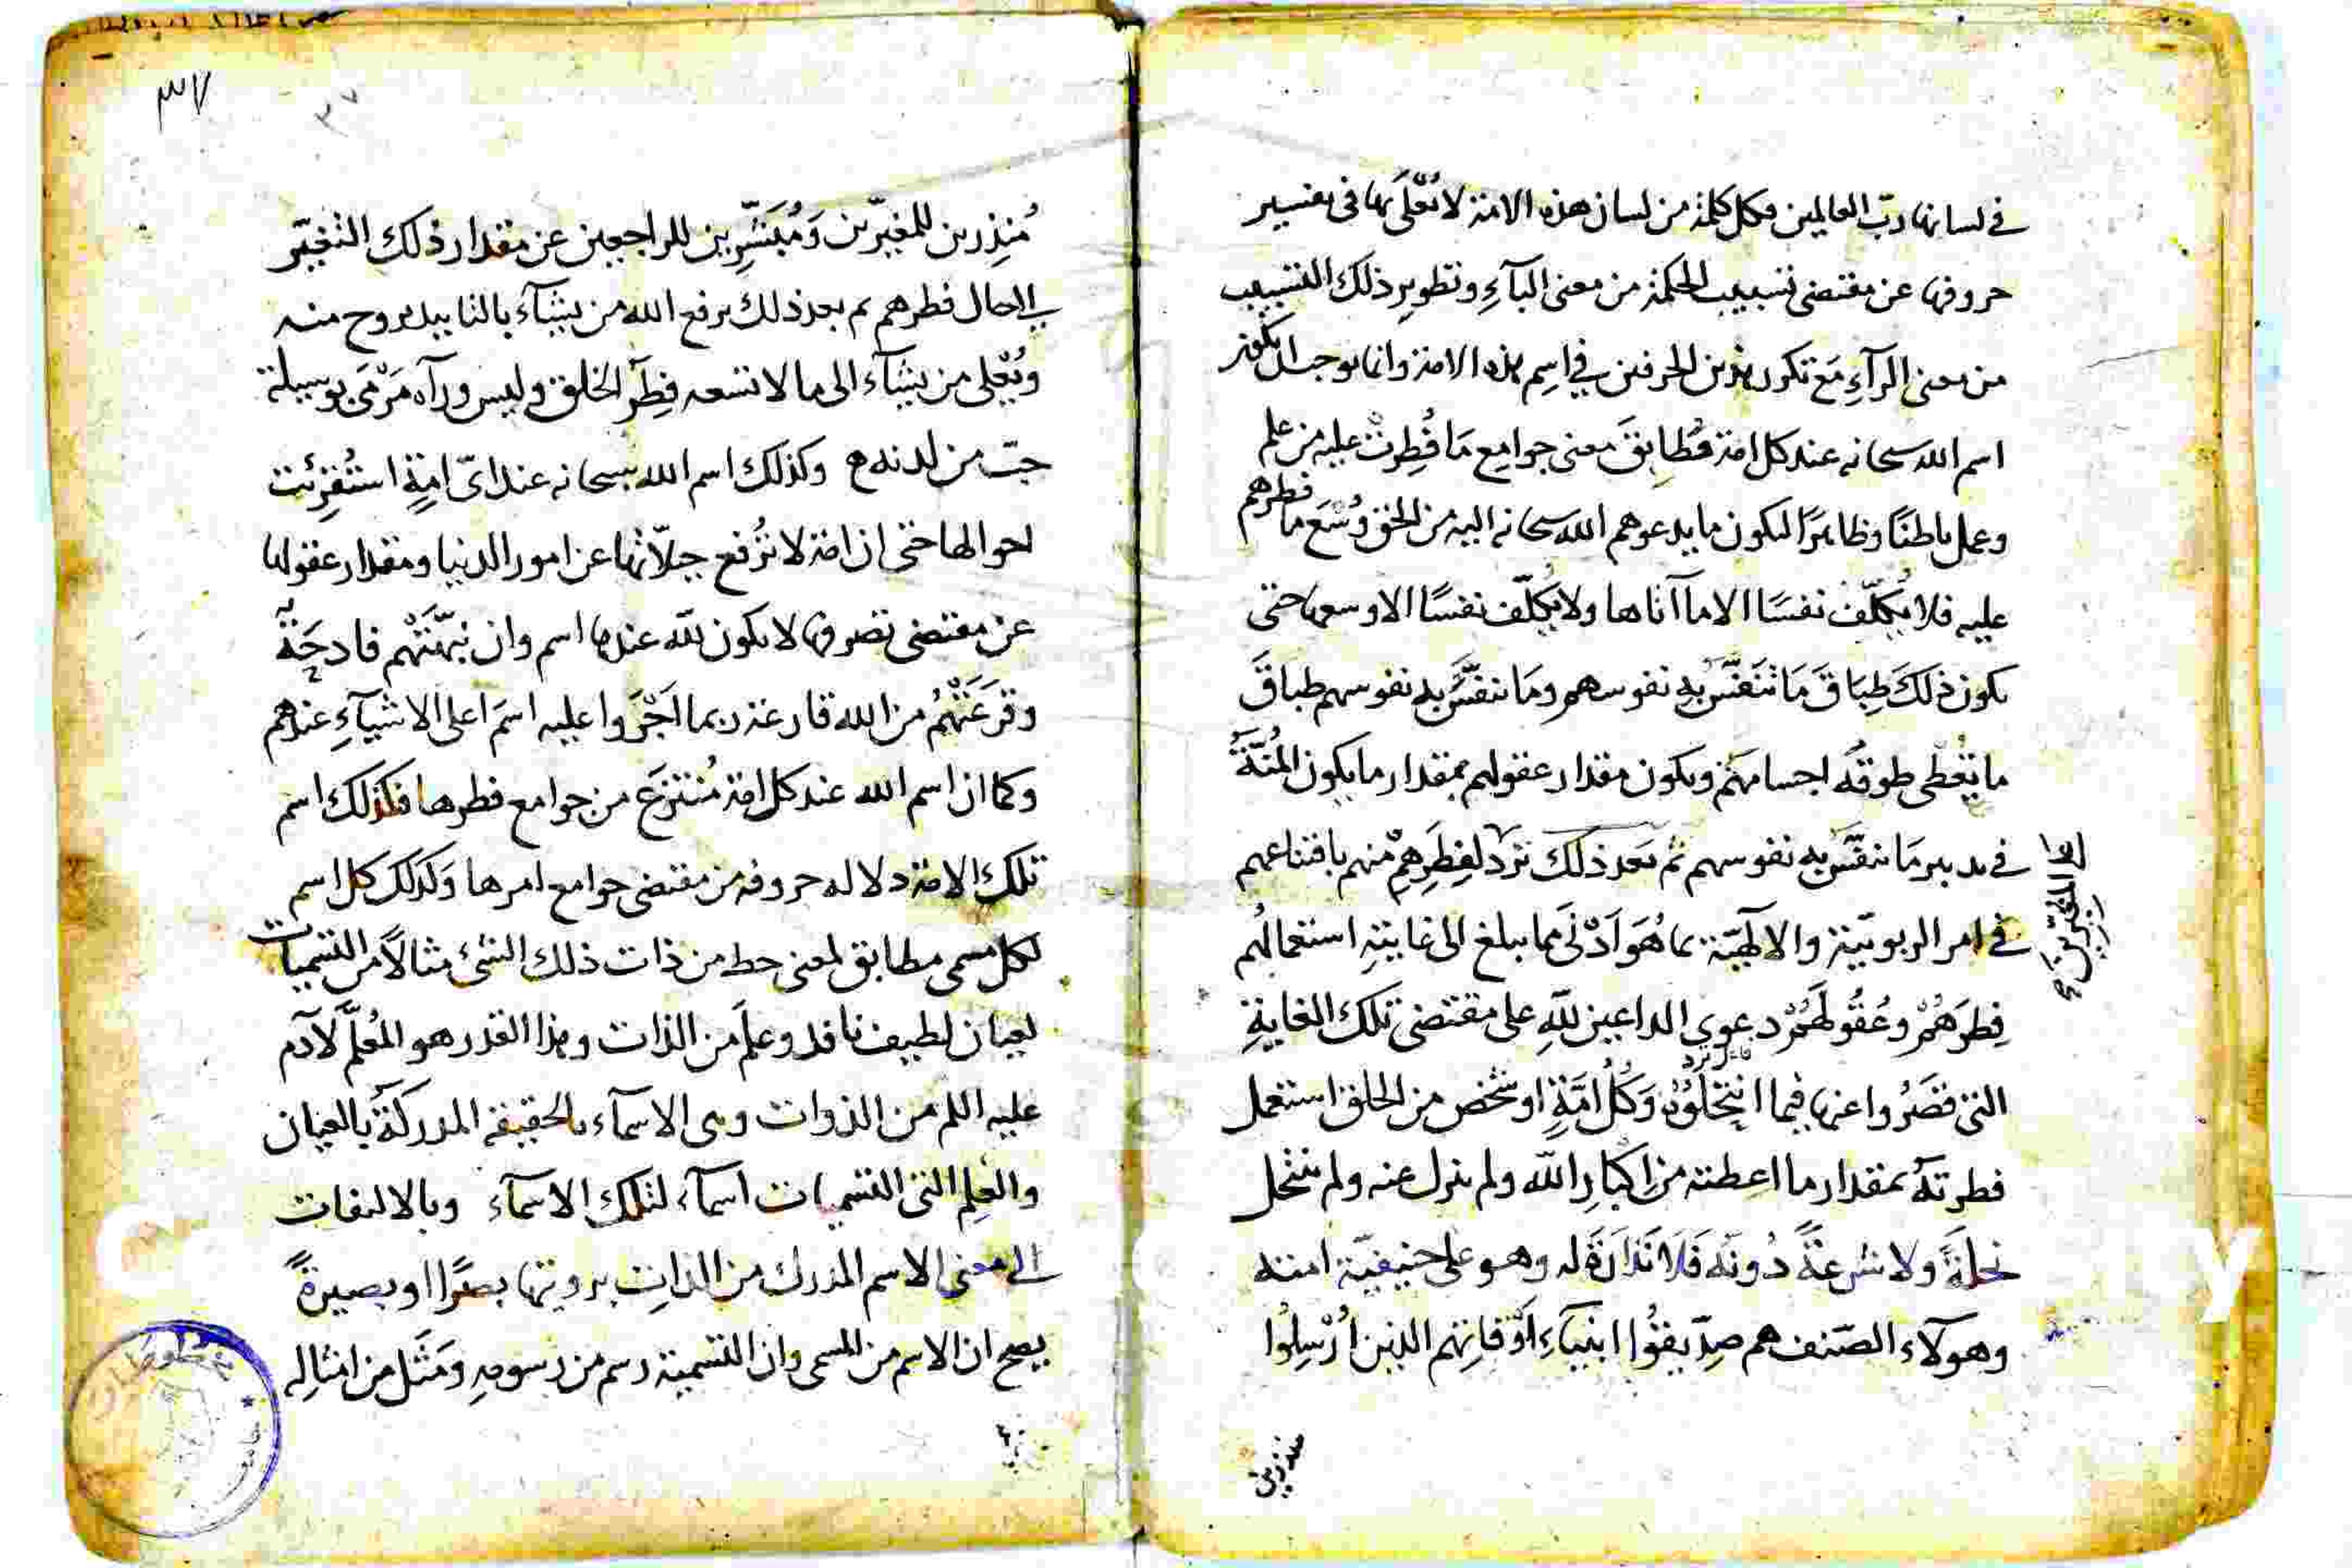 في لسانها ربّ العالمين فكل كلمة من لسان هذه الامة لا تُعَلَّى بها في تفسير
حروفها عن مقتضى تسبيب الحكمة من معنى البآءِ وتطوير ذلك التسبيب
من معنى الرآءِ مَع تكرر هذين الحرفين في اِسم هذه الامة وانما يوجب ان يكون
اسم الله سبحانه عند كل امة مُطابقَ معنى جوامع مَا فُطِرتْ عليه من علم
وعمل باطنًا وظاهرًا ليكون ما يدعوهم الله سبحانه اليه من الحق وُسْعَ ما فطرهم
عليه فلا يُكلّف نفسَا الا ما آتاها ولا يُكلّف نفسًا الا وسعها حتى
يكون ذلكَ طِبَاقَ مَا تتنفَّسُ بهِ نفوسهم ومَا تتنفَّسُ بهِ نفوسهم طباقَ
ما يُعْطى طوقُه اجسامهَم ويكون مقدار عقولهم بمقدار ما يكون المُنّةُ
في تدبير مَا تتنفّسُ بهِ نفوسهم ثم بَعد ذلك تَرد لفِطَرِهِمْ منهم باقتناعهم
في امر الربوبيّة والالٓهيّة بما هُوَ اَدْنَى مما يبلغ الى غايتهِ استعمالُهم
فِطَرَهُمْ وعُقُولَهُمْ دعوى الداعين للّهِ على مقتضى تلك الغايةِ
التي قصَرُوا عنها فيما انتحلُوْهُ وَكُلُّ امَّةٍ او شخص من الخلق استعمل
فطرتَهُ بمقدار ما اعطته من اِكبارِ اللّه ولم ينزل عنه ولم ينتحل
نحلَةً ولا شرعَةً دُونَه فَلَا نَذارَةَ له وهو على حنيفيّة امته
وهؤلآء الصّنف هم صِدّيقُوا انبيآءِ اوْقاتِهم الذين اُرْسِلُوا
منذرين
مُنذِرين للمغيّرين وَمُبَشِّرين للراجعين عن مقدار ذلك التغيّر
الى حال فطرهم ثم بعد ذلك يرفع الله من يشآء بالتاييد بروح منه
ويُعْلى من يشآء الى ما لا تسعه فِطَر الخلق وليس ورآه مَرْمَى بوسيلة
حبّ من لدنه وكذلك اسم الله سبحانه عند ايّ امةٍ استُقرِئت
احوالها حتى ان امة لا تُرفع جبلّاتُها عن امور الدنيا ومقدار عقولها
عن مقتضى تصرفها لا يكون للّه عندها اسم وان نبهَتْهم فادحَةٌ
وقرَعَتْهُم من الله قارعة ربما اَجْرَوا عليه اسمَ اعلى الاشيآءِ عندهم
وكما ان اسم الله عند كل امة مُنتزَع من جوامع فطرها فكذلك اسم
تلك الامة دلالة حروفه من مقتضى جوامع امرها وَكذلك كل اسم
لكل مسمى مطابق لمعنى حظ من ذات ذلك الشئ مثالًا من التسميات
لعيان لطيف نافد وعلمَ من الذات وهذا القدر هو المُعلَّم لآدم
عليه السلم من الذوات وهى الاسمآء بالحقيقة المدركَةُ بالعيان
والعِلم التى التسميات اسمآء لتلك الاسمآء وبالالتفات
الى معنى الاسم المدرك من الذاتِ برويتها بصَرًا او بصيرةً
يصح ان الاسم من المسمى وان التسمية رسم من رسومهِ ومَثَل من امثالِه
٣٧